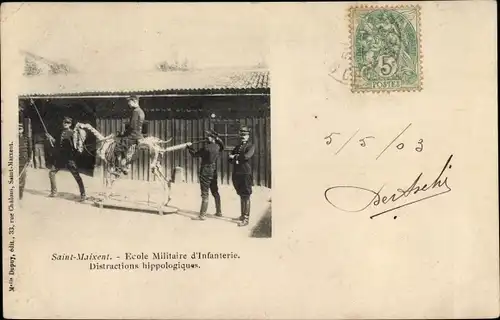 5
POSTES
5/5/03
Saint-Maixent. - Ecole Militaire d'Infanterie.
Distractions hippologiques.
Mlle Dupuy, édit., 33, rue Châlons, Saint-Maixent.